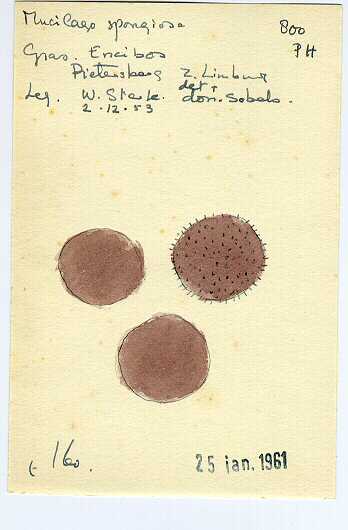 Mucilago spongiosa
800
PH
Gras. Encibos
Pietersberg Z. Limburg
det +
Leg. W. Sterk. don. Sobels.
2.12.53
160.
25 jan. 1961